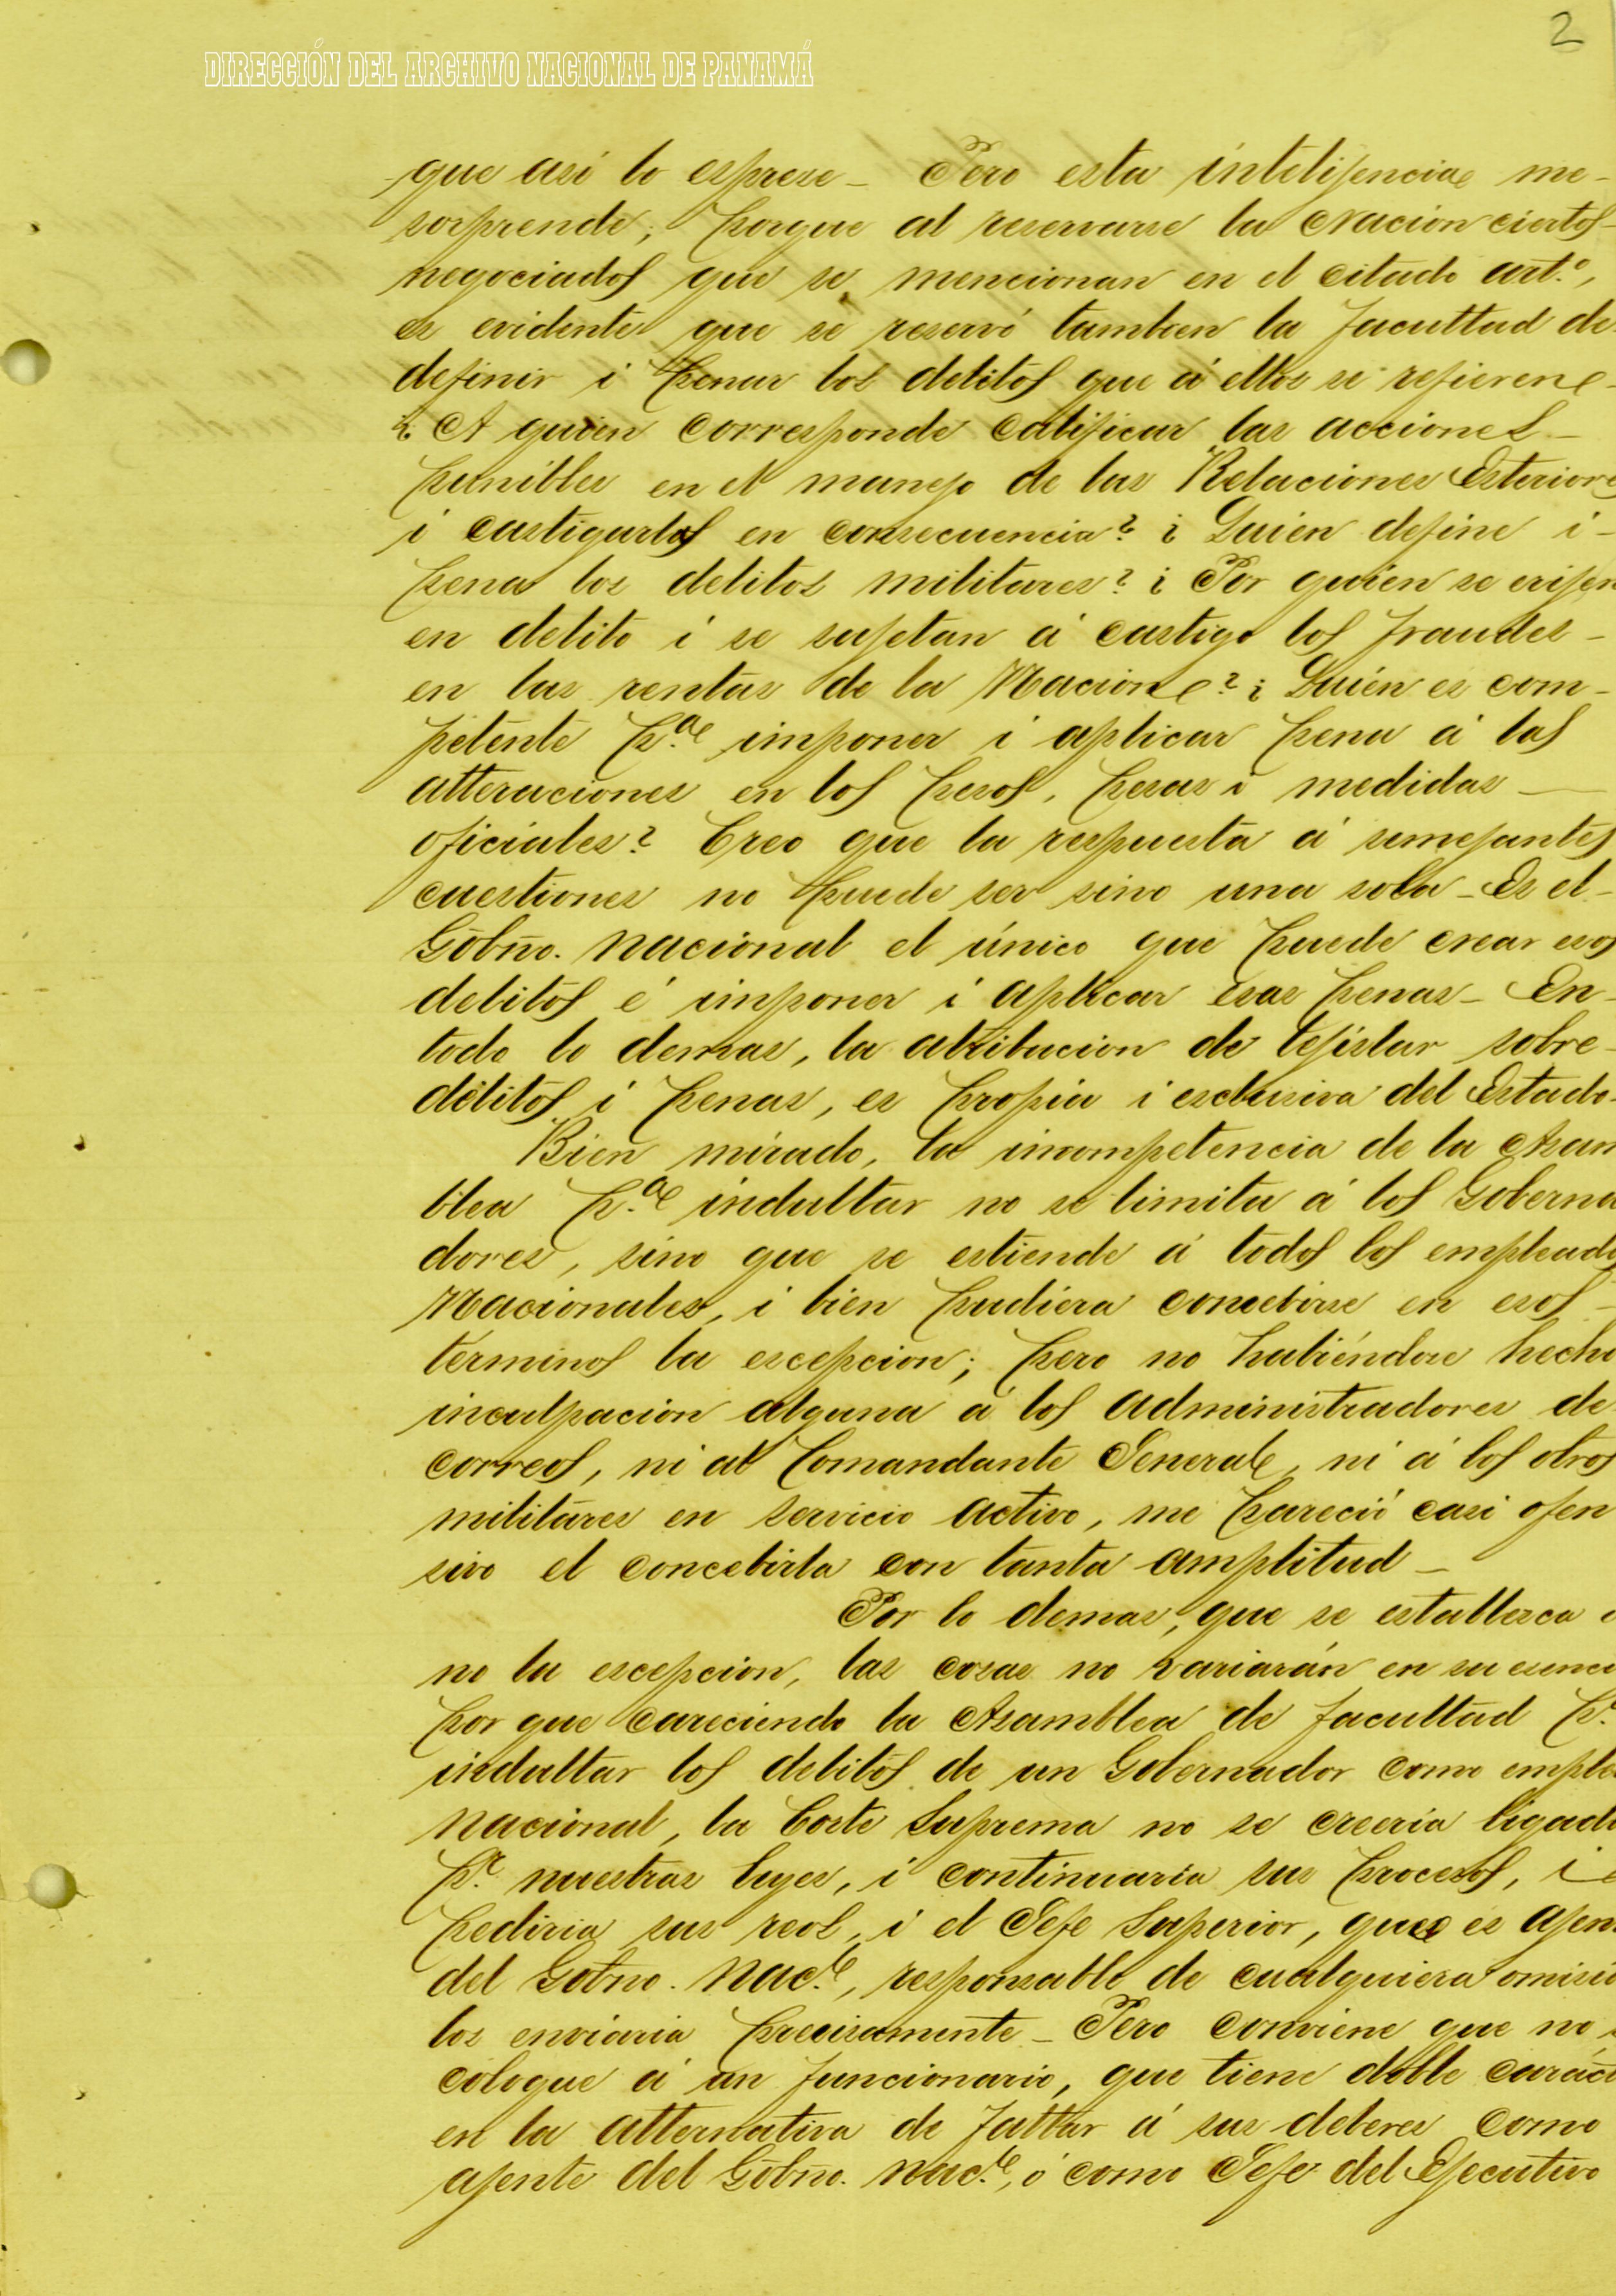 2
DIRECCIÓN DEL ARCHIVO NACIONAL DE PANAMÁ
que así lo esprese_ Pero esta intelijencia me-
sorprende, porque al reservarse la Nacion ciertos-
negociados que se mencionan en el citado art.º,
es evidente que se reservó tambien la facultad de
definir i penar los delitos que á ellos se refieren_
¿A quien corresponde calificar las acciones_
punibles en el manejo de las Relaciones Esteriores
i castigarlos en consecuencia? ¿Quién define i-
pena los delitos militares? ¿Por quién se erijen
en delito i se sujetan á castigo los fraudes_
en las rentas de la Nacion? ¿Quién es com-
petente p.ª imponer i aplicar pena á las
alteraciones en los pesos, pesas i medidas_
oficiales? Creo que la respuesta á semejantes
cuestiones no puede ser sino una sola_Es el_
Gobno. Nacional el único que puede crear esos
delitos é imponer i aplicar esas penas_ En_
todo lo demas, la atribucion de lejislar sobre_
delitos i penas, es propia i esclusiva del Estado.
Bien mirado, la incompetencia de la Asam
blea p.ª indultar no se limita á los Goberna
dores, sino que se estiende á todos los emplead
Nacionales, i bien pudiera concebirse en esos_
términos la escepcion; pero no habiéndose hecho
inculpacion alguna á los administradores de
correos, ni al Comandante General, ni á los otros
militares en servicio activo, me pareció casi ofen
sivo el concebirla con tanta amplitud_
Por lo demas, que se establesca o
no la escepcion, las cosas no variarán en su esenci
por que careciendo la Asamblea de facultad p.ª
indultar los delitos de un Gobernador como emple
nacional, la Corte Suprema no se creeria ligad
p.r nuestras leyes, i continuaria sus procesos, i
pediria sus reos, i el Jefe Superior, que es ajen
del Gobno. Nac.l, responsable de cualquiera omisio
los enviaria precisamente_ Pero conviene que no
coloque á un funcionario, que tiene doble caráct
en la alternativa de faltar á sus deberes como
ajente del Gobno. Nac.l, ó como Jefe del Ejecutivo